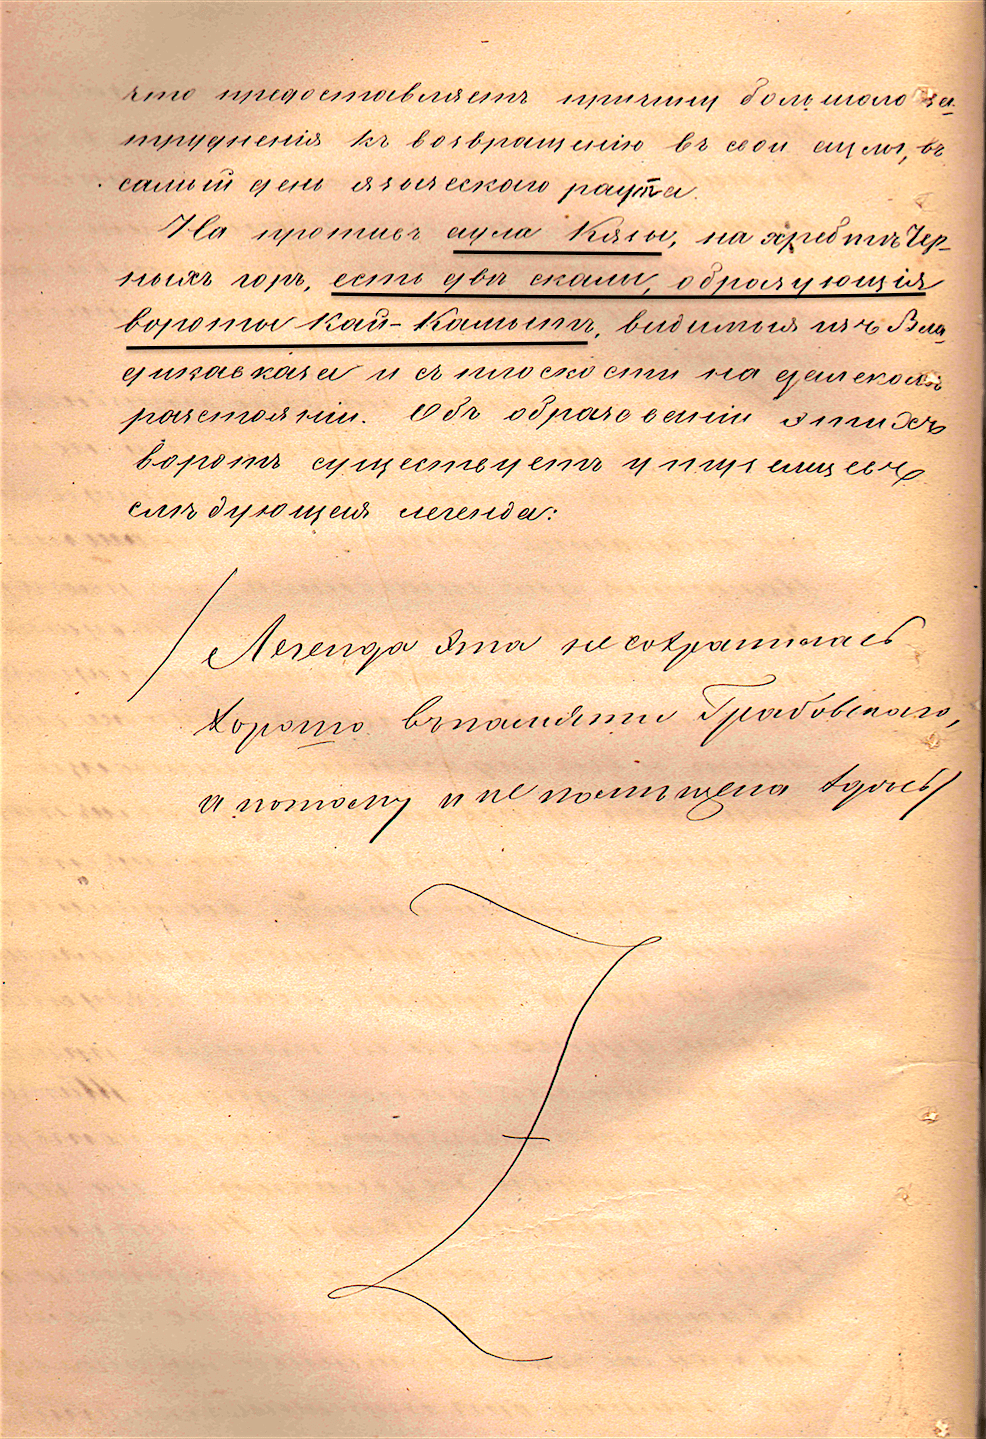 что предоставляетъ причину большого за-
трудненія къ возвращенію въ свои аулы, въ
самый день языческого раута.
На противъ аула Кязы, на хребтѣ Чер-
ныхъ горъ, есть двѣ скалы, образующія
вороты Кай-Камытъ, видимыя изъ Вла-
дикавказа и съ плоскости на далекомъ
разстояніи. Объ образованіи этихъ
воротъ существуетъ у ингушевцевъ
слѣдующая легенда:
/ Легенда эта не сохранилась
хорошо въ памяти Грабовскаго,
и потому и не помѣщена здѣсь /